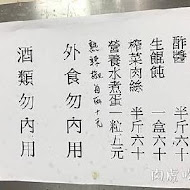 酢醬 半斤六十
生餛飩 一盒六十
榨菜肉絲 半斤六十
營養水煮蛋 一粒五元
外食勿內用
酒類勿內用